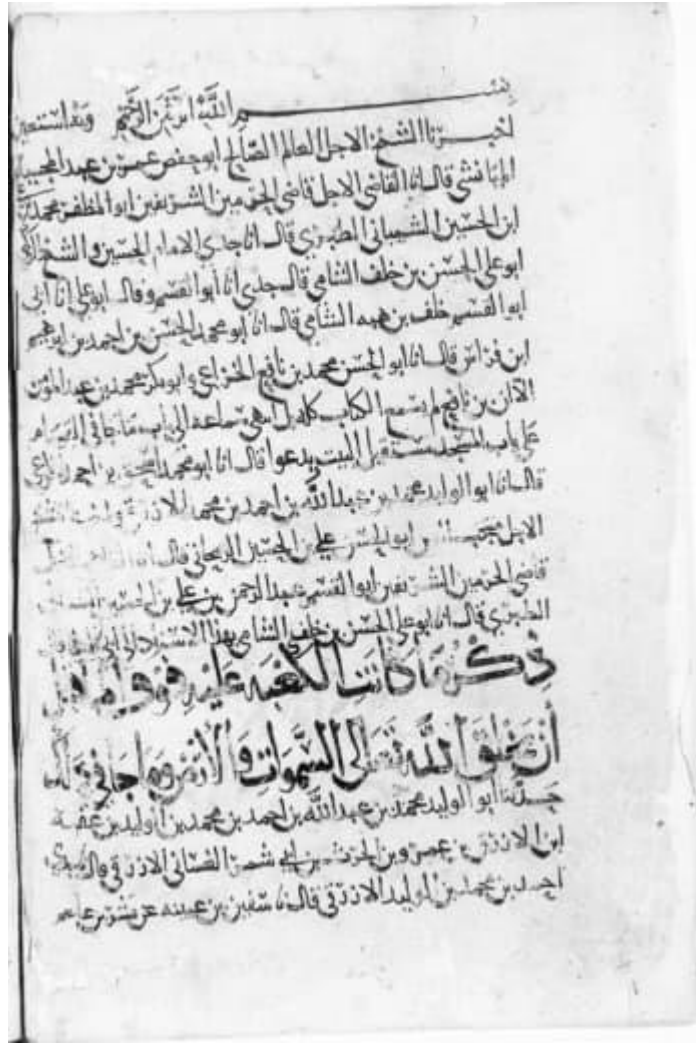 بسم الله الرحمن الرحيم وبه استعين
اخبرنا الشيخ الاجل العالم الصالح ابو حفص عمر بن عبد المجيد
قال انا القاضي الاجل قاضي الحرمين الشريفين ابو المظفر محمد بن
ابن الحسين الشيباني الطبري قال انا جدي الامام الحسين و الشيخ
ابو علي الحسن بن خلف الشامي قال جدي انا ابو القسم وقال ابو علي انا ابي
ابو القسم خلف بن هبه الشامي قال انا ابو محمد الحسن بن احمد بن ابرهيم
ابن فراس قال انا ابو الحسن محمد بن نافع الخزاعي وابو بكر محمد بن عبد المؤمن
الا ان بن نافع لم يسمع الكتاب كله انتهى سماعه الى باب ما جا في
على باب المسجد قبل البيت يدعوا قال انا ابو محمد اسحق بن احمد
قال انا ابو الوليد محمد بن عبد الله بن احمد بن محمد الازرقي
الاجل ابو الحسن علي بن الحسين قال انا
قاضي الحرمين الشريفين ابو القسم عبد الرحمن بن علي بن
الطبري قال انا ابو علي الحسن بن خلف الشامي بهذا الاسناد الى
ذكر ما كانت الكعبه عليه فوق الما قبل
أن يخلق الله تعالى السموات والأرض وما جا في ذلك
حدثنا ابو الوليد محمد بن عبد الله بن احمد بن محمد بن الوليد بن عقبه
ابن الازرق بن عمرو بن الحرث بن ابي شمر الغساني الازرقي قال
احمد بن محمد بن الوليد الازرقي قال نا سفين بن عيينه عن بشر بن عاصم